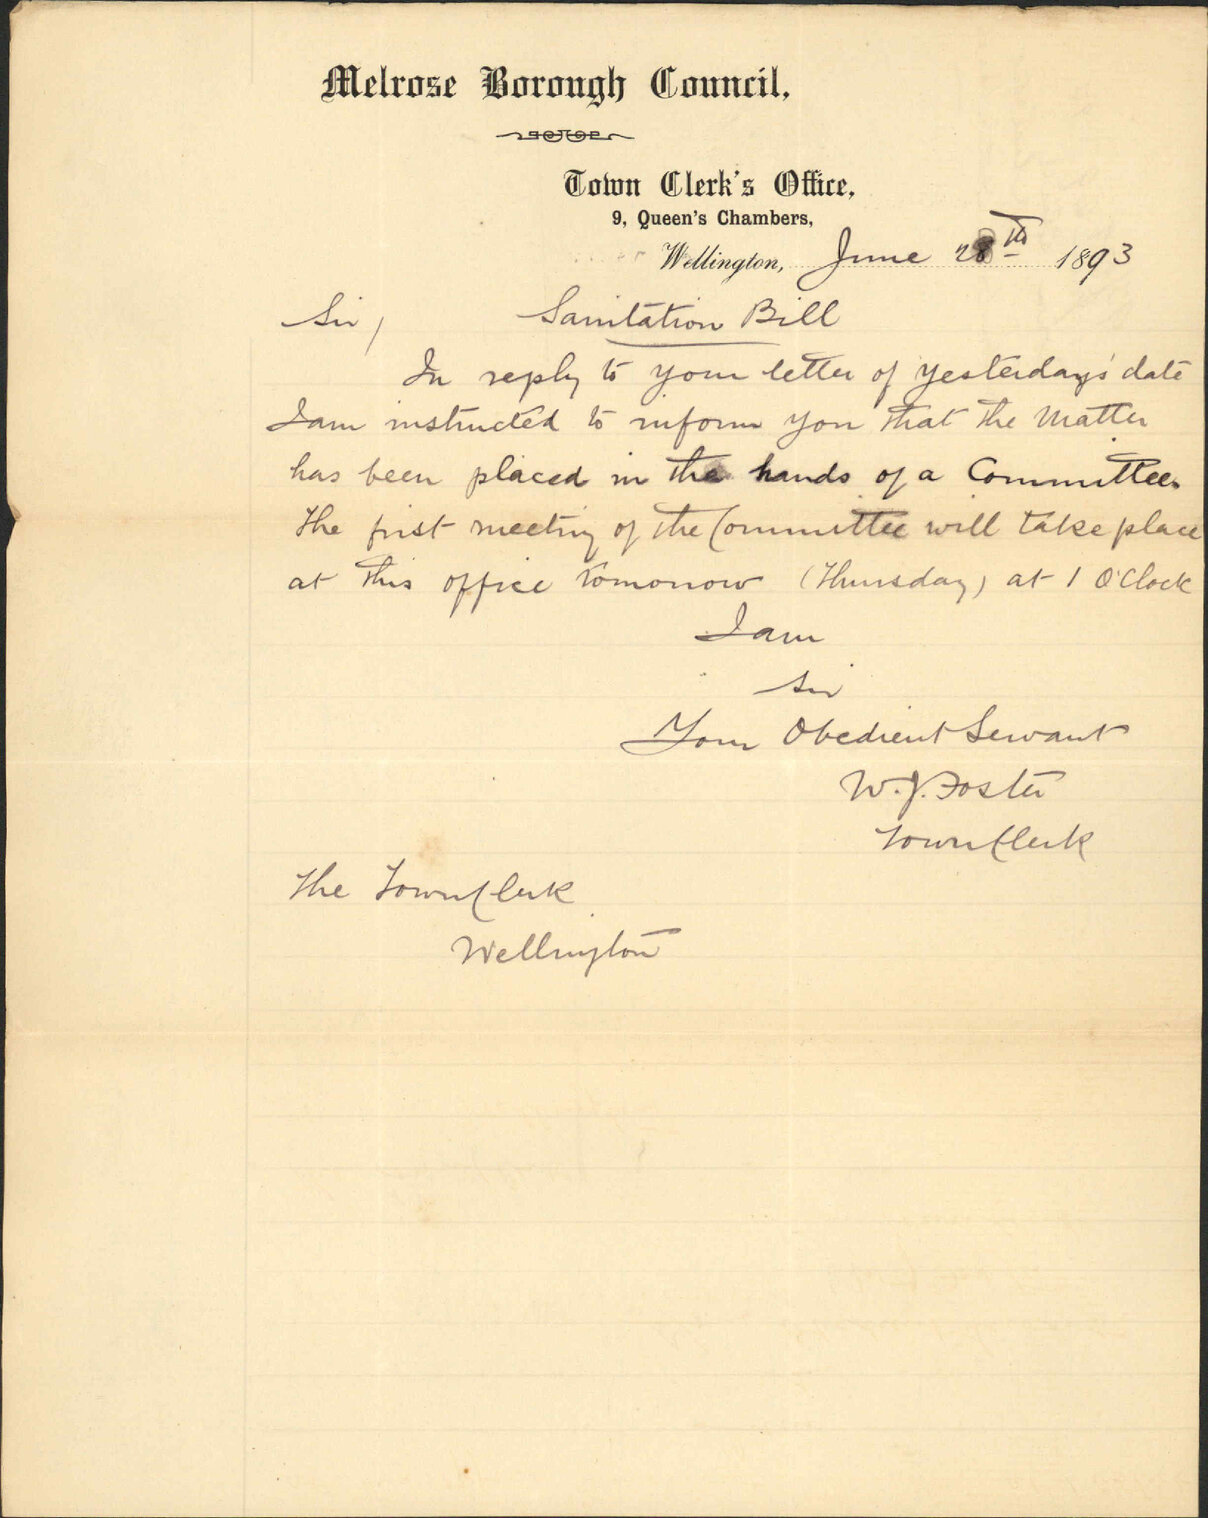 Melrose Borough Council,
Town Clerk's Office,
9, Queen's Chambers,
Wellington, June 28th 1893
Sir, Sanitation Bill
In reply to your letter of yesterday's date
I am instructed to inform you that the Matter
has been placed in the hands of a Committee.
The first meeting of the Committee will take place
at this office tomorrow (Thursday) at 1 O'Clock
I am
Sir
Your Obedient Servant
W. J. Foster
Town Clerk
The Town Clerk
Wellington